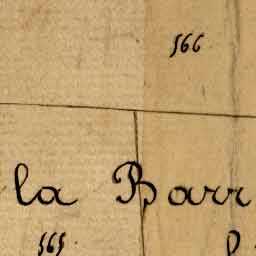 566
la Barr
565